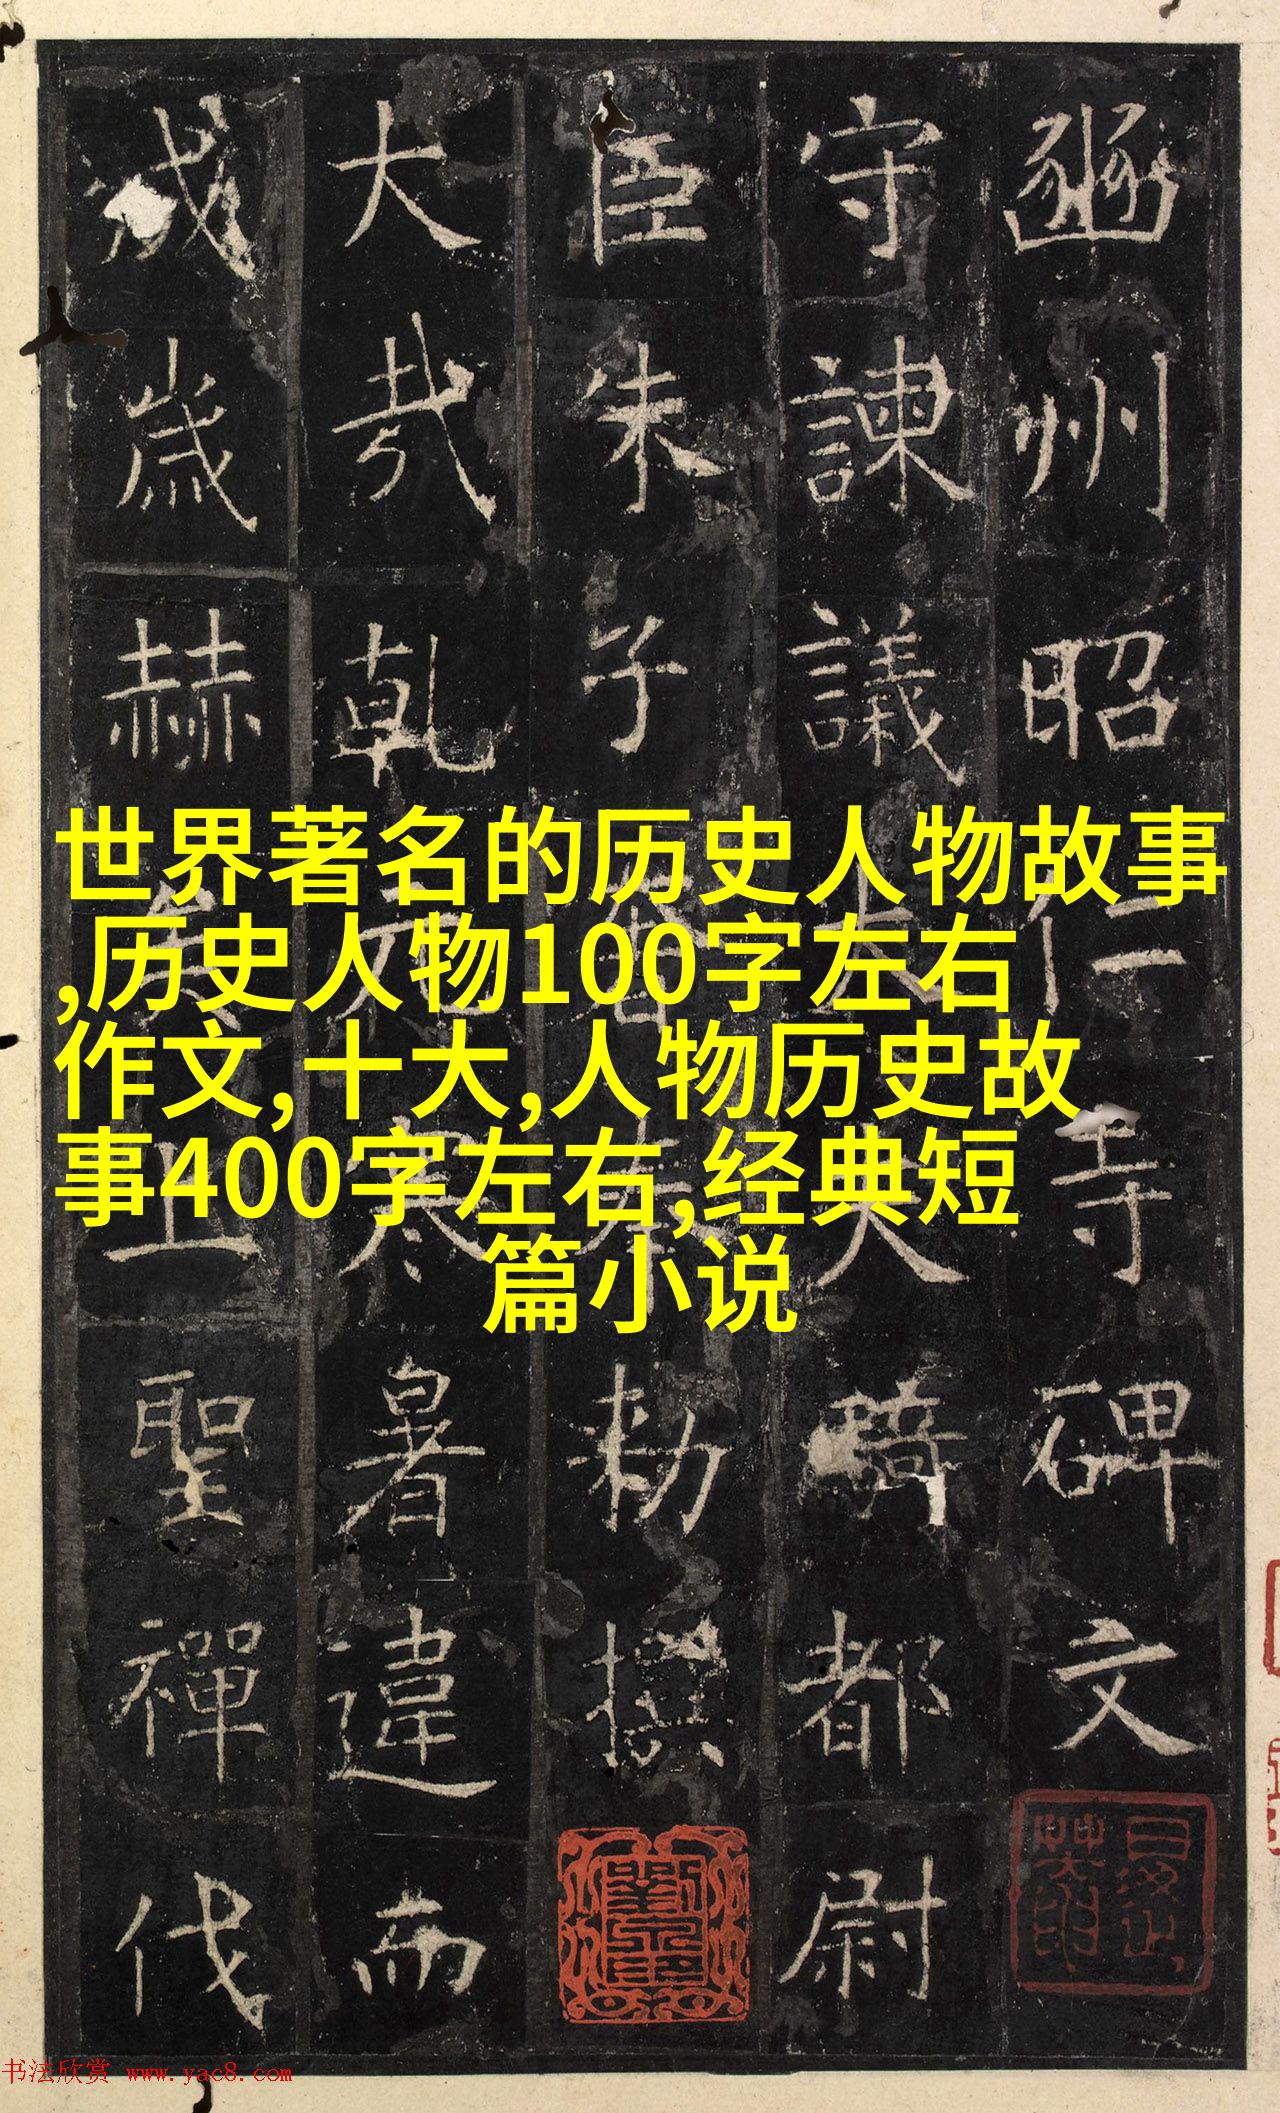 豳州昭仁寺碑文
守諫議大夫騎都尉
臣朱子奢奉勑撰
大哉乾元寒暑違而
成歲赫矣上聖禪代
世界著名的历史人物故事
,历史人物100字左右
作文,十大,人物历史故
事400字左右,经典短
篇小说
书法欣赏 www.yac8.com